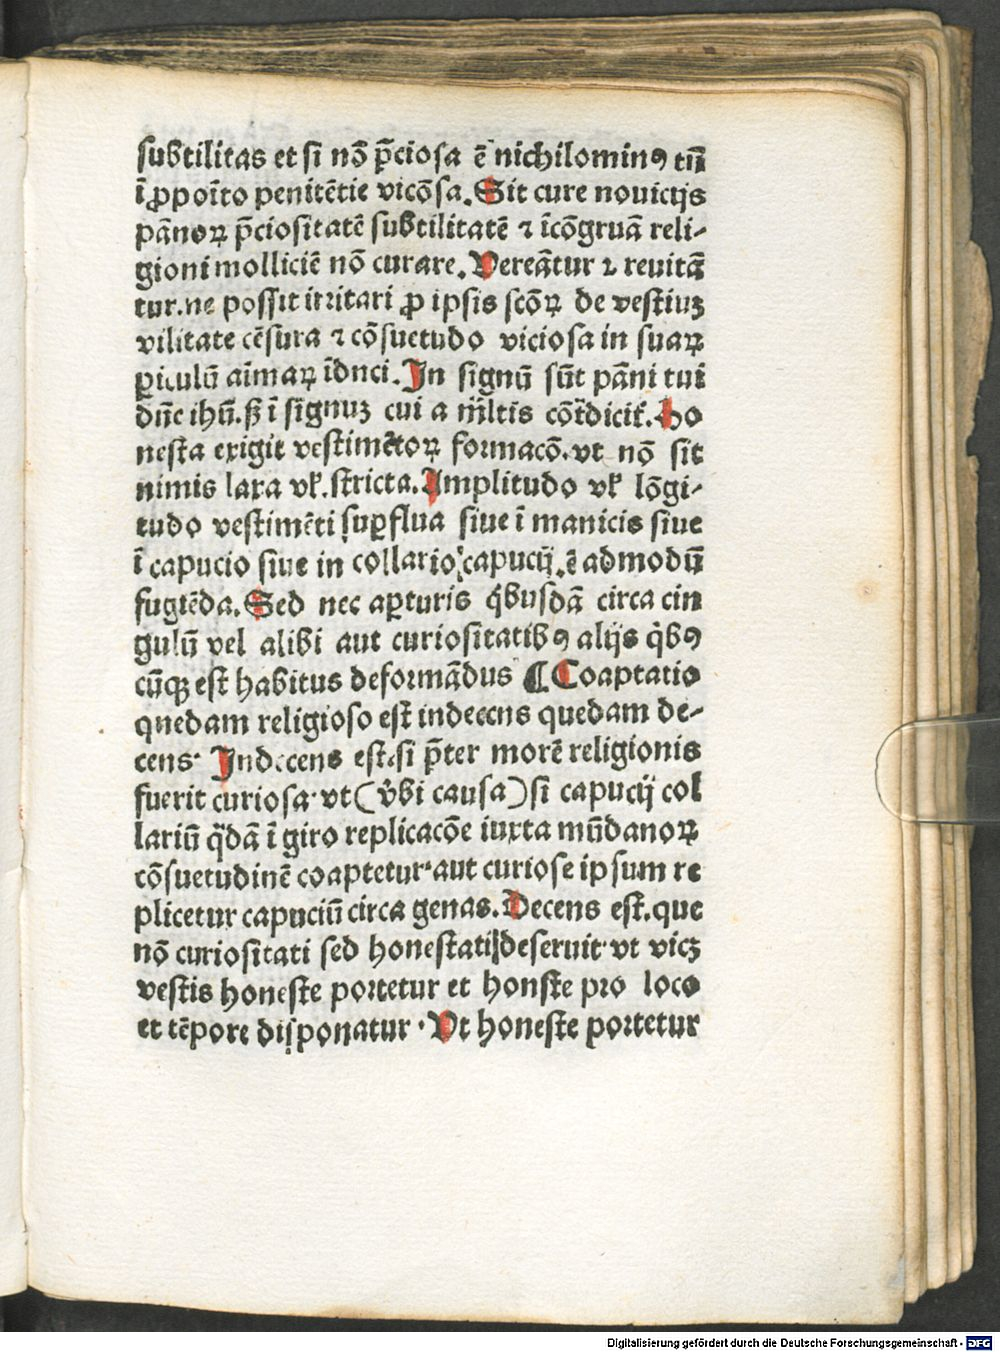 subtilitas et si nō p̄ciosa ē nichilominꝯ tn̄
ī ꝓpoīto penitētie vicōsa. Sit cure nouicijs
pānoꝝ p̄ciositatē subtilitatē ⁊ īcōgruā reli-
gioni molliciē nō curare. Vereātur ⁊ reuitā
tur. ne possit irritari ꝓ ipsis scōꝝ de vestiuꝫ
vilitate cēsura ⁊ cōsuetudo viciosa in suaꝝ
ꝑiculū aīmaꝝ īdnci. In signū sūt pāni tui
dūc ihū. ß ī signuꝫ cui a m̄ltis cōtͥdicitͬ. Ho
nesta exigit vestimētoꝝ formacō. vt nō sit
nimis laxa vꝉ. stricta. Amplitudo vꝉ lōgi-
tudo vestimēti suꝑflua siue ī manicis siue
ī capucio siue in collario capucij. ē admodū
fugiēda. Sed nec aꝑturis qͥbusdā circa cin
gulū vel alibi aut curiositatibꝯ alijs qͥbꝯ
cūqꝫ est habitus deformādus ¶ Coaptatio
quedam religioso est indecens quedam de-
cens· Indecens est. si p̄ter morē religionis
fuerit curiosa· vt (vͦbi causa) si capucij col
lariū q̄dā ī giro replicacōe iuxta mūdanoꝝ
cōsuetudinē coaptetur· aut curiose ipsum re
plicetur capuciū circa genas. Decens est. que
nō curiositati sed honestati deseruit· vt vicꝫ
vestis honeste portetur et honste pro loco
et tēpore disponatur · Vt honeste portetur
Digitalisierung gefördert durch die Deutsche Forschungsgemeinschaft - DFG